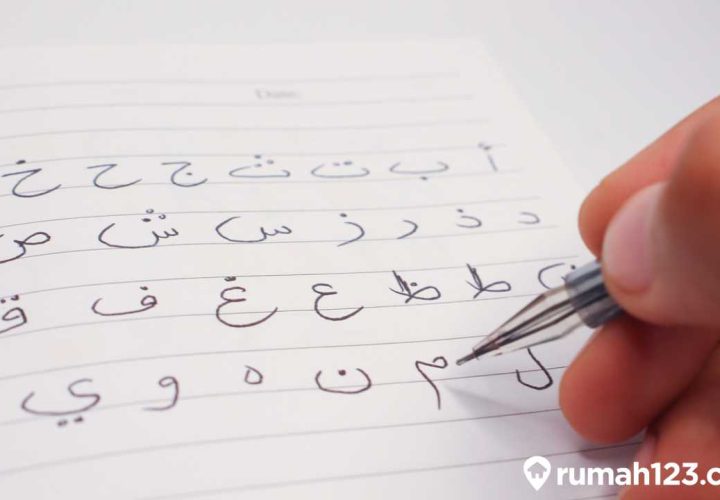 Date
أ ب ت ث ج ح خ
د ذ ر ز س ش ص
ط ظ ع غ ف ق
ل م ن ه و ي
rumah123.c